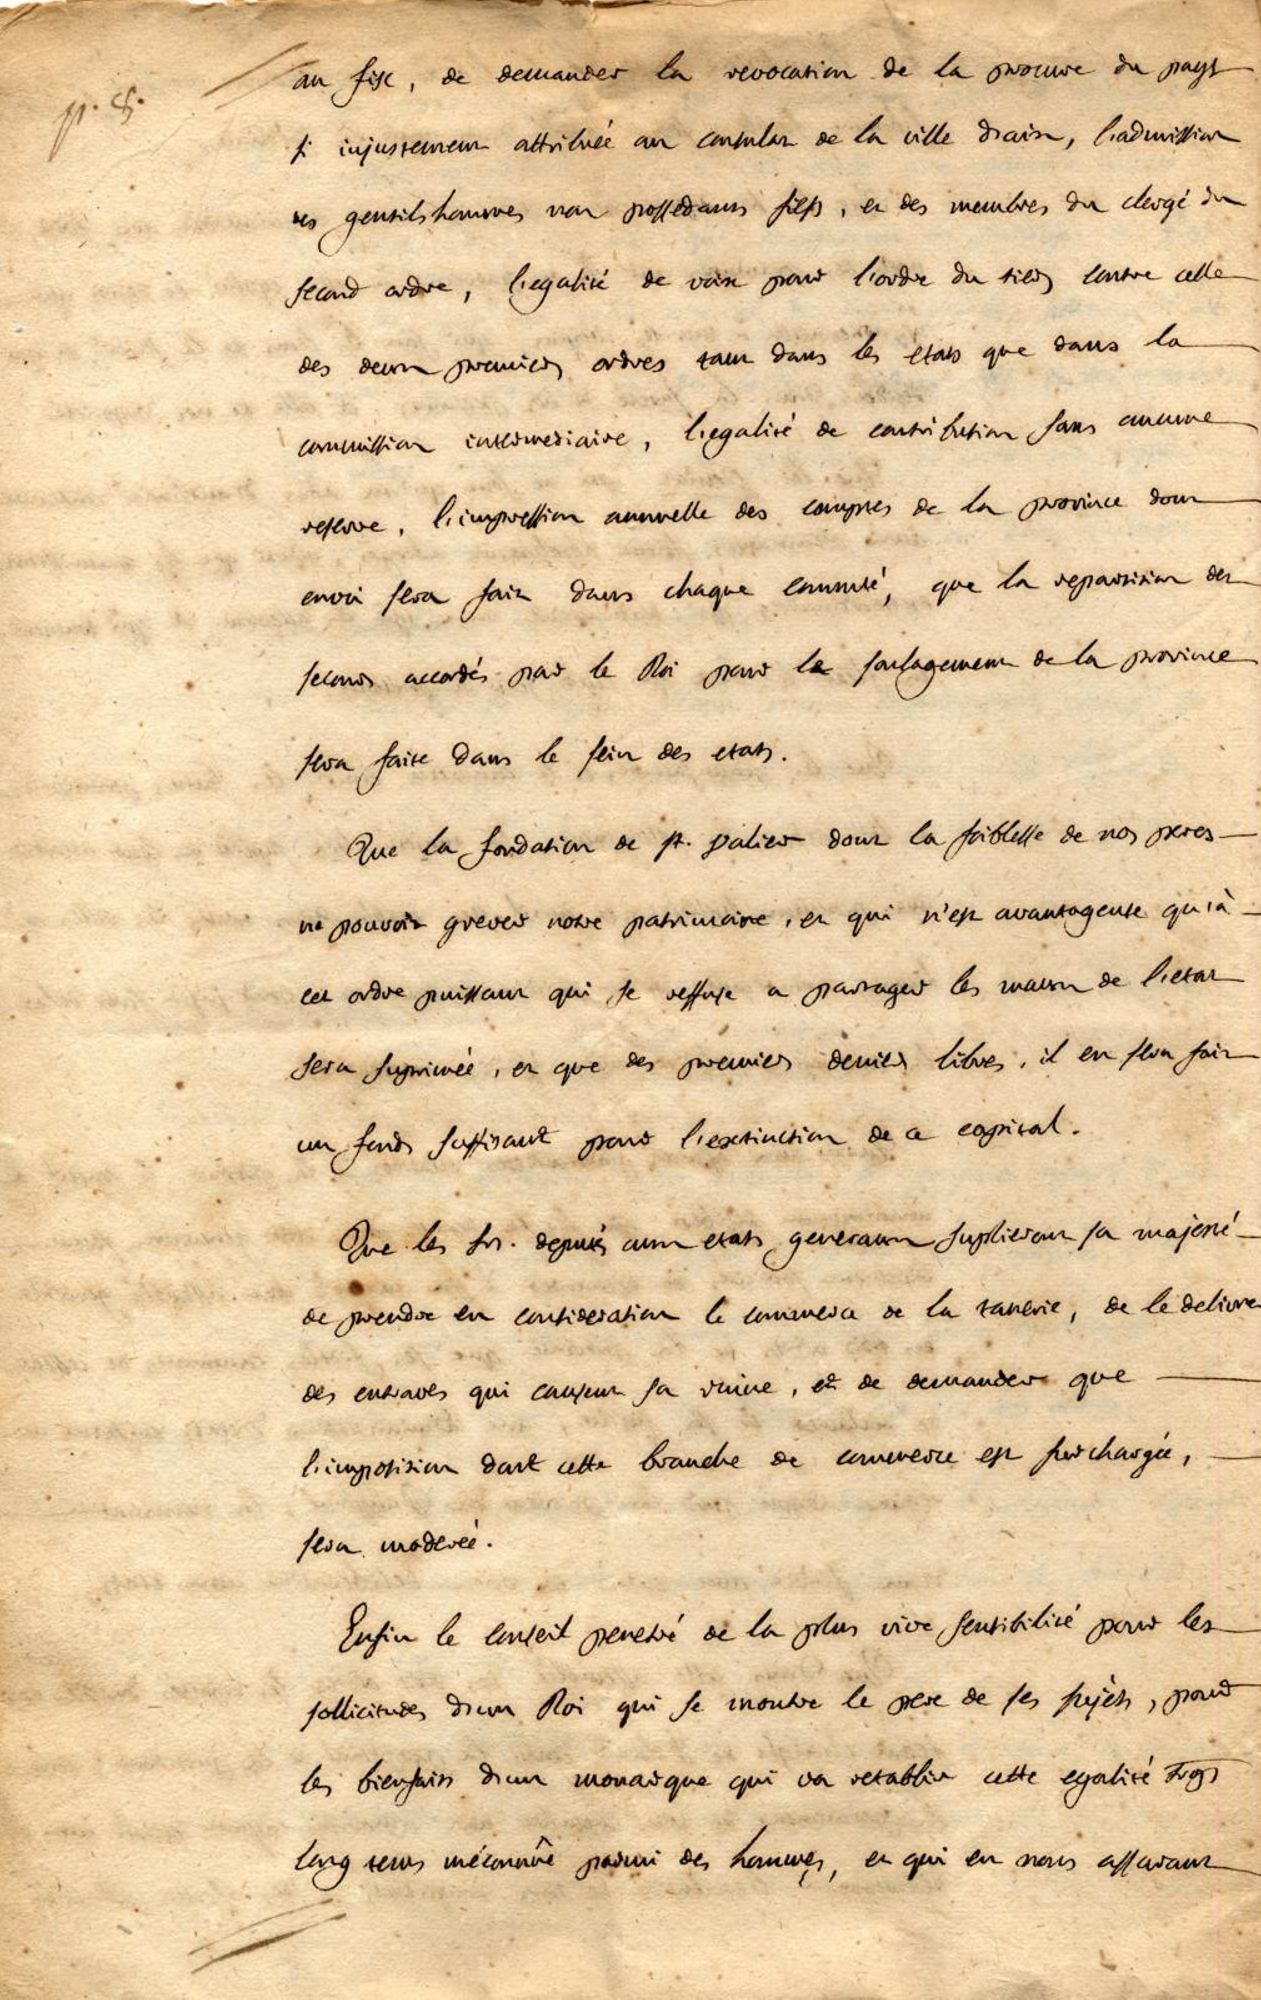 p. 8.
au fisc, de demander la revocation de la procure du pays
si injustement attribuée au consulat de la ville d'aix, l'admission
des gentilshommes non possedants fiefs, et des membres du clergé du
second ordre, l'egalité de voix pour l'ordre du tiers contre celle
des deux premiers ordres tant dans les etats que dans la
commission intermediaire, l'egalité de contribution sans aucune
reserve, l'impression annuelle des comptes de la province dont
envoi sera fait dans chaque commté, que la repartition des
secours accordés par le Roi pour le soulagement de la province
sera faite dans le sein des etats.
Que la fondation de st. valier dont la foiblesse de nos peres
ne pouvoit grever notre patrimoine, et qui n'est avantageuse qu'à
cet ordre puissant qui se reffuse a partager les maux de l'etat
sera suprimée, et que des premiers deniers libres, il en sera fait
un fonds suffisant pour l'extinction de ce capital.
Que les srs. deputés aux etats generaux suplieront sa majesté
de prendre en consideration le commerce de la tanerie, de le delivrer
des entraves qui causent sa ruine, et de demander que
l'imposition dont cette branche de commerce est surchargée,
sera moderée.
Enfin le conseil penetré de la plus vive sensibilité pour les
sollicitudes d'un Roi qui se montre le pere de ses sujets, pour
les bienfaits d'un monarque qui va retablir cette egalité trop
long tems méconnüe parmi des hommes, et qui en nous assurant